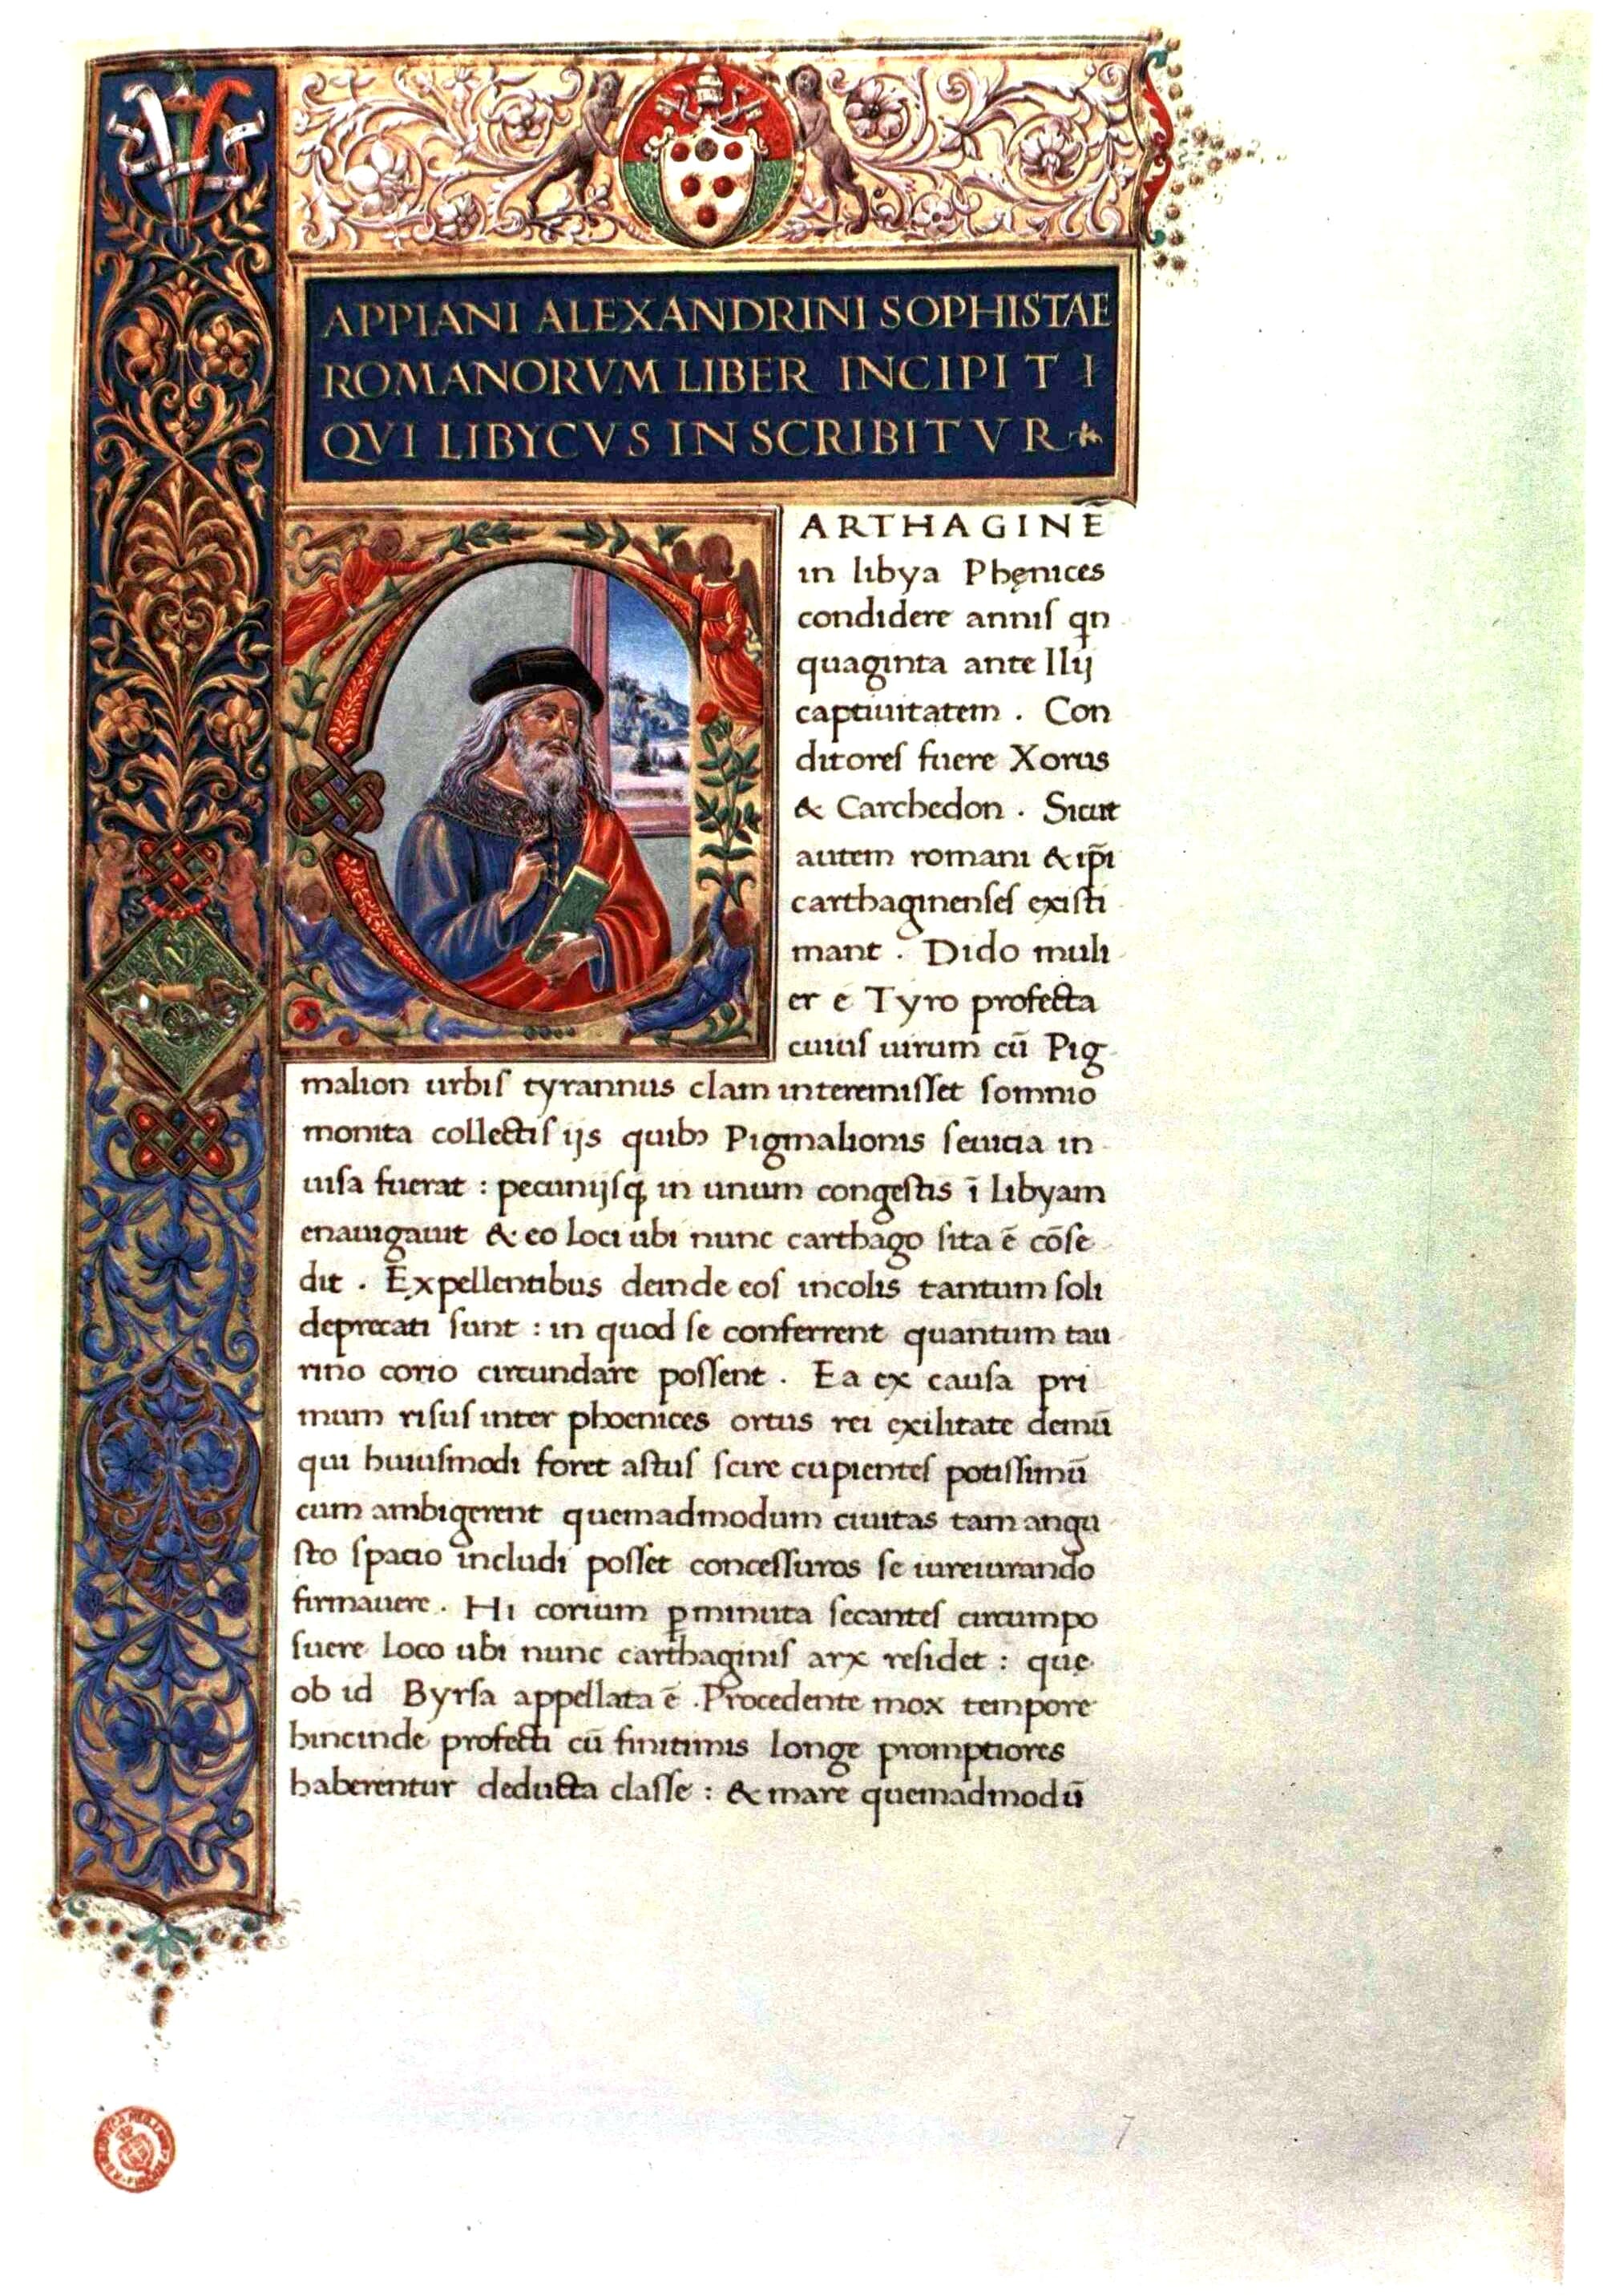 APPIANI ALEXANDRINI SOPHISTAE
ROMANORVM LIBER INCIPIT I
QVI LIBYCVS INSCRIBITVR
ARTHAGINĒ
in libya Phęnices
condidere anniſ qn
quaginta ante Ilij
captiuitatem . Con
ditoreſ fuere Xorus
& Carchedon . Sicut
autem romani & ip̄i
carthaginenſeſ exiſti
mant . Dido muli
er e Tyro profecta
cuiuſ uirum cū Pig
malion urbiſ tyrannus clam interemiſſet ſomnio
monita collectiſ ijs quibꝰ Pigmalionis ſeuicia in
uiſa fuerat : pecunijſqꝫ in unum congeſtis ī libyam
enauigauit & eo loci ubi nunc carthago ſita ē cōſe
dit . Expellentibus deinde eoſ incolis tantum ſoli
deprecati ſunt : in quod ſe conferrent quantum tau
rino corio circundare poſſent . Ea ex cauſa pri
mum riſuſ inter phoenices ortus rei exilitate demū
qui huiuſmodi foret aſtuſ ſcire cupienteſ potiſſimū
cum ambigerent quemadmodum ciuitas tam angu
ſto ſpacio includi poſſet conceſſuros ſe iureiurando
firmauere . Hi corium ꝑminuta ſecanteſ circumpo
ſuere loco ubi nunc carthaginiſ arx reſidet : quę
ob id Byrſa appellata ē . Procedente mox tempore
hincinde profecti cū finitimis longe promptiores
haberentur deducta claſſe : & mare quemadmodū
7